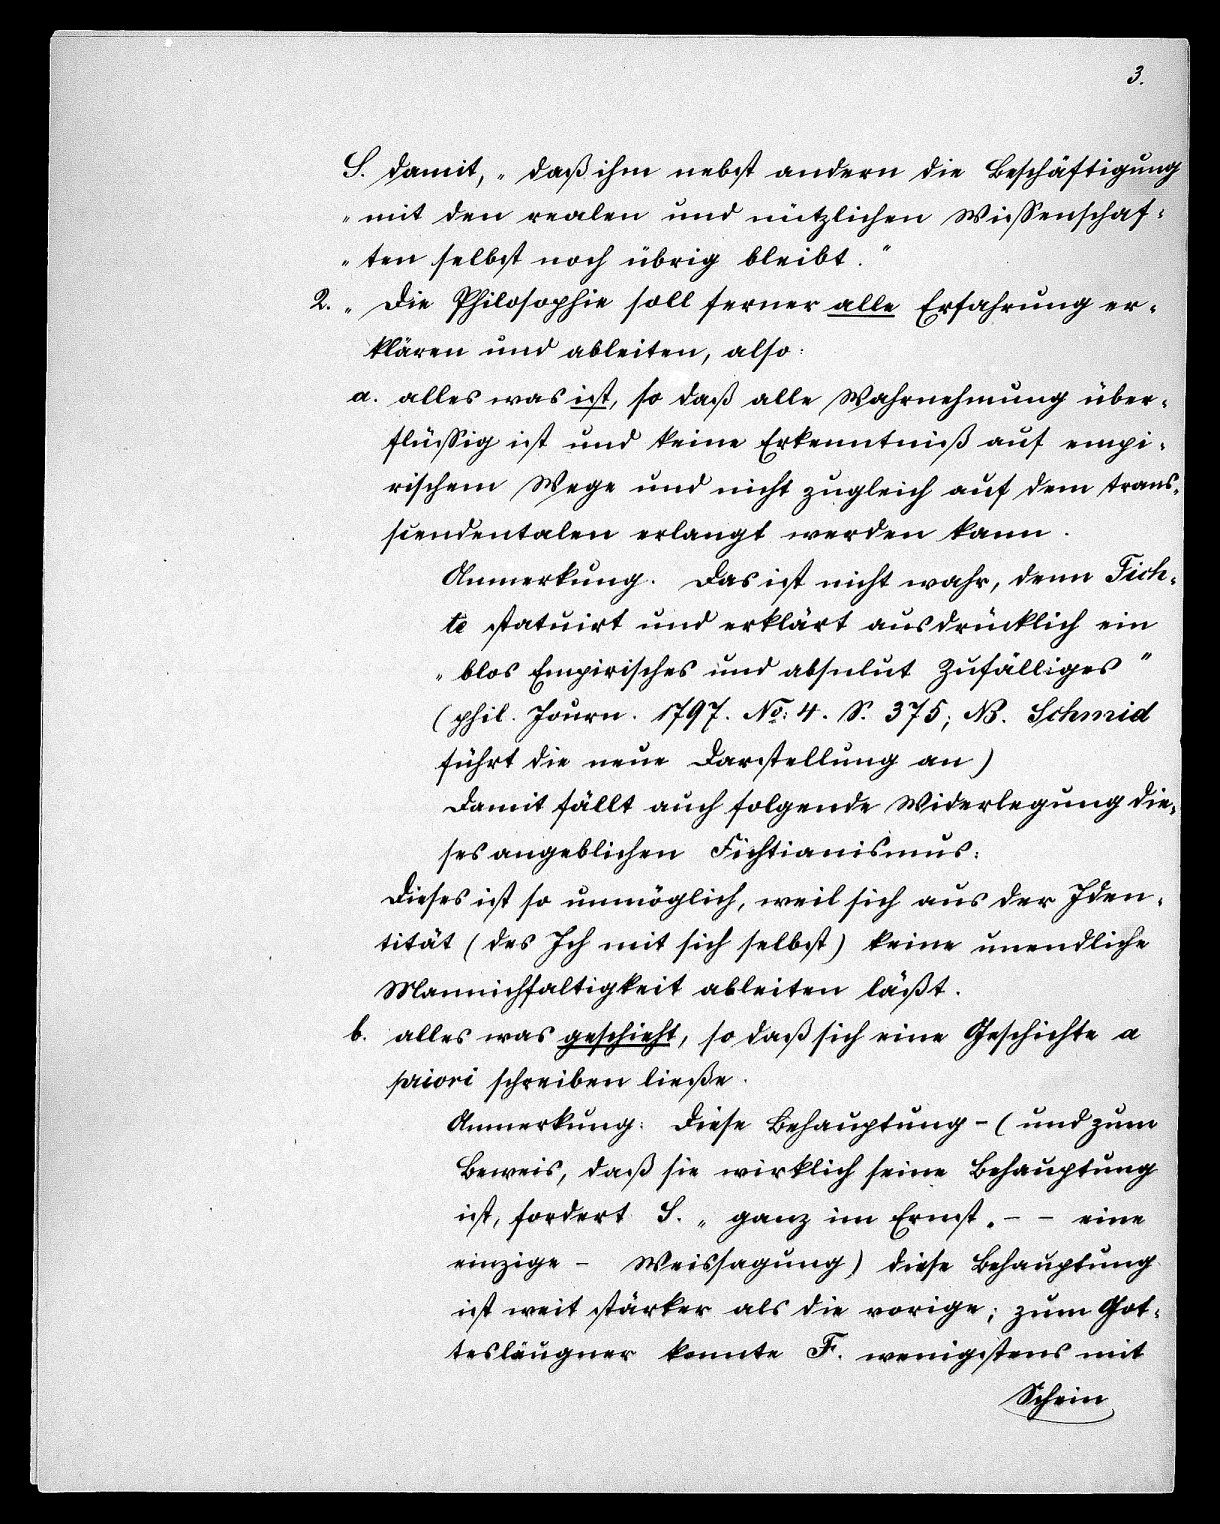 3.
S. damit, „ daß ihm nebst andern die Beschäftigung
„ mit den realen und nützlichen Wissenschaf-
„ ten selbst noch übrig bleibt.“
2. „ Die Philosophie soll ferner alle Erfahrung er-
klären und ableiten, also:
a. alles was ist, so daß alle Wahrnehmung über-
flüssig ist und keine Erkenntniß auf empi-
rischem Wege und nicht zugleich auf dem trans-
scendentalen erlangt werden kann.
Anmerkung. Das ist nicht wahr, denn Fich-
te statuirt und erklärt ausdrücklich ein
„ blos Empirisches und absolut Zufälliges “
(phil. Journ. 1797. No: 4. S. 375; NB. Schmid
führt die neue Darstellung an)
Damit fällt auch folgende Widerlegung die-
ses angeblichen Fichtianismus:
Dieses ist so unmöglich, weil sich aus der Iden-
tität (des Ich mit sich selbst) keine unendliche
Mannichfaltigkeit ableiten läßt.
b. alles was geschieht, so daß sich eine Geschichte a
priori schreiben ließe.
Anmerkung: Diese Behauptung – (und zum
Beweis, daß sie wirklich seine Behauptung
ist, fordert S. „ ganz im Ernst. – – eine
einzige – Weissagung) diese Behauptung
ist weit stärker als die vorige; zum Got-
tesläugner konnte F. wenigstens mit
Schein